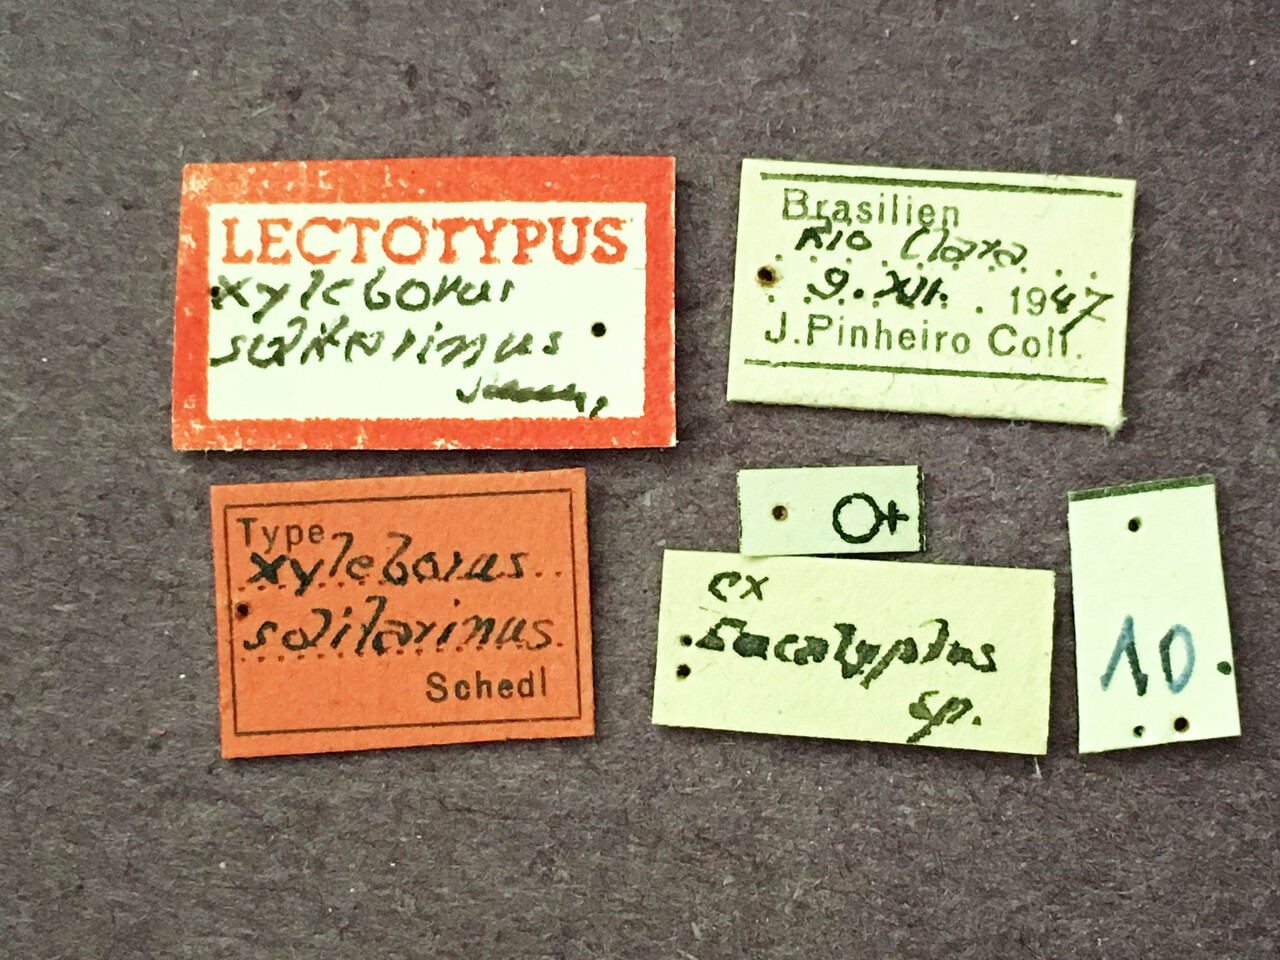 LECTOTYPUS
xyleborus
solitarinus
Brasilien
Rio Claro
9. XII. 1947
J.Pinheiro Coll.
Type
xyleborus
solitarinus
Schedl
♀
ex
Eucalyptus
sp.
10